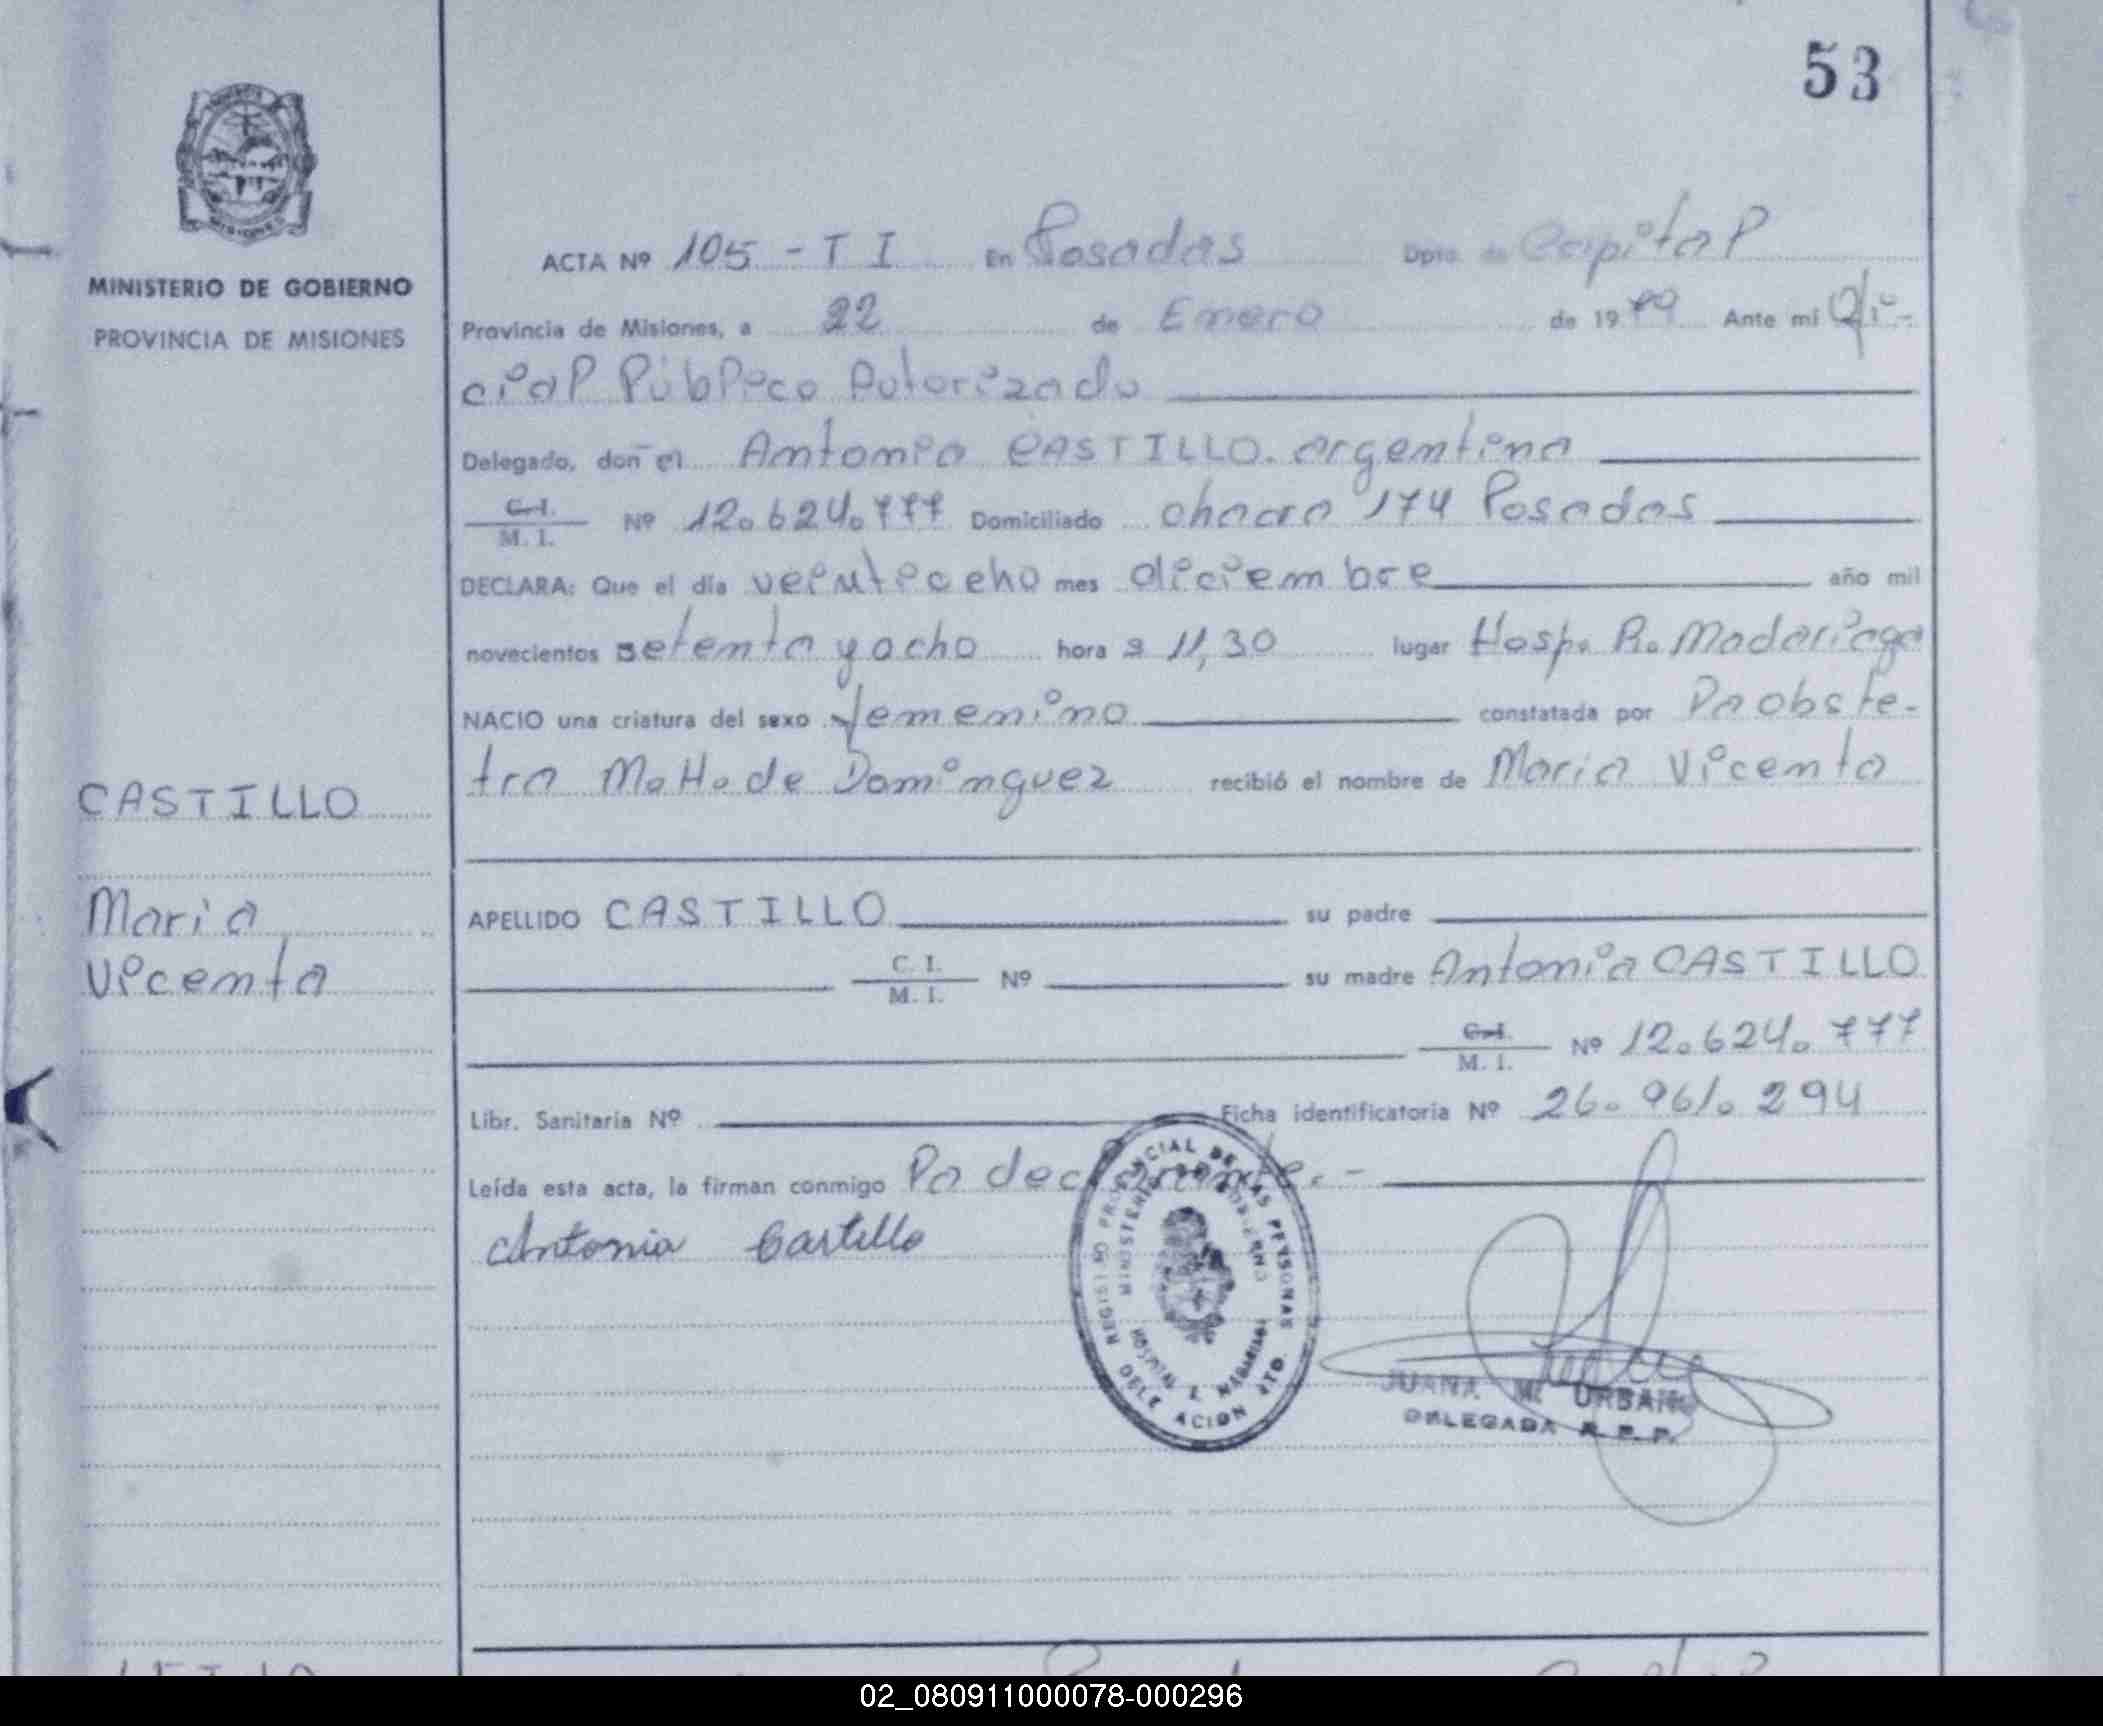 53
MINISTERIO DE GOBIERNO
PROVINCIA DE MISIONES
CASTILLO
Maria
Vicenta
ACTA Nº 105 - T I En Posadas Dpto. de Capital
Provincia de Misiones, a 22 de Enero de 1979 Ante mi Ofi-
cial Público Autorizado
Delegado, don el Antonia CASTILLO. argentina
C.I.
M. I. Nº 12.624.777 Domiciliado chacra 174 Posadas
DECLARA: Que el día veinteocho mes diciembre año mil
novecientos setenta y ocho hora s 11,30 lugar Hosp. R. Madariaga
NACIO una criatura del sexo femenino constatada por la obste-
tra Ma H. de Dominguez recibió el nombre de Maria Vicenta
APELLIDO CASTILLO su padre
C. I.
M. I. Nº su madre Antonia CASTILLO
C.I.
M. I. Nº 12.624.777
Libr. Sanitaria Nº Ficha identificatoria Nº 26.961.294
Leída esta acta, la firman conmigo la declarante. -
Antonia Castillo
REGISTRO PROVINCIAL DE LAS PERSONAS
MINISTERIO GOBIERNO
HOSPITAL R. MADARIAGA
DELEGACION
JUANA M. URBANO
DELEGADA R. P. P.
02_080911000078-000296